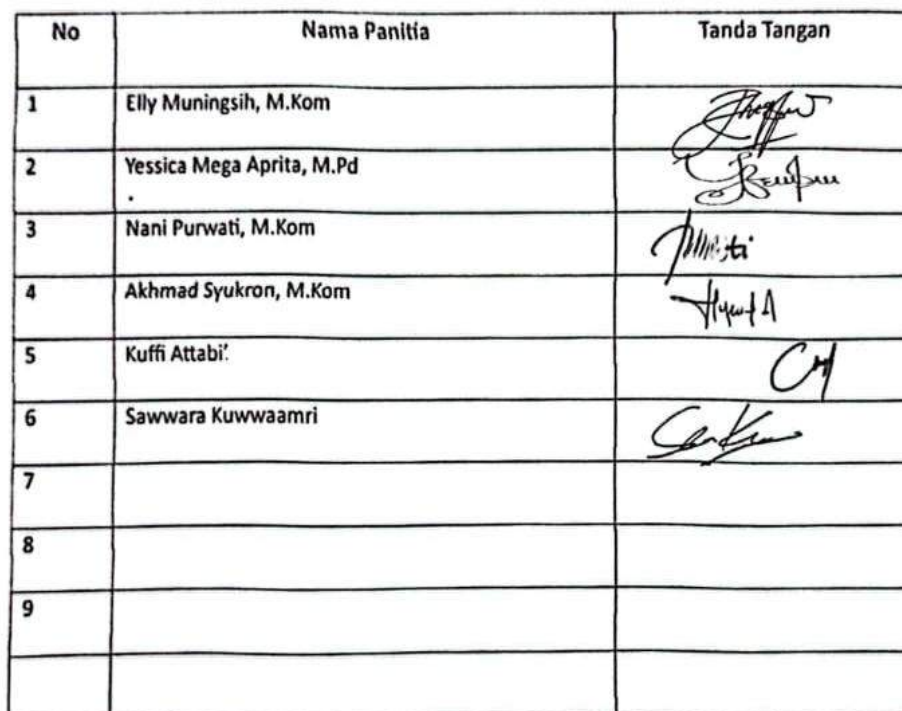 No Nama Panitia Tanda Tangan
1 Elly Muningsih, M.Kom
2 Yessica Mega Aprita, M.Pd
.
3 Nani Purwati, M.Kom
4 Akhmad Syukron, M.Kom
5 Kuffi Attabi'.
6 Sawwara Kuwwaamri
7
8
9